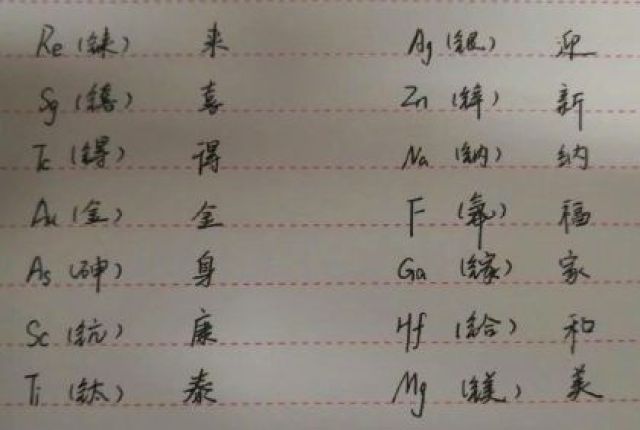 Re (铼) 来 Ag (银) 迎
Sg (𬭳) 喜 Zn (锌) 新
Tc (锝) 得 Na (钠) 纳
Au (金) 全 F (氟) 福
As (砷) 身 Ga (镓) 家
Sc (钪) 康 Hf (铪) 和
Ti (钛) 泰 Mg (镁) 美